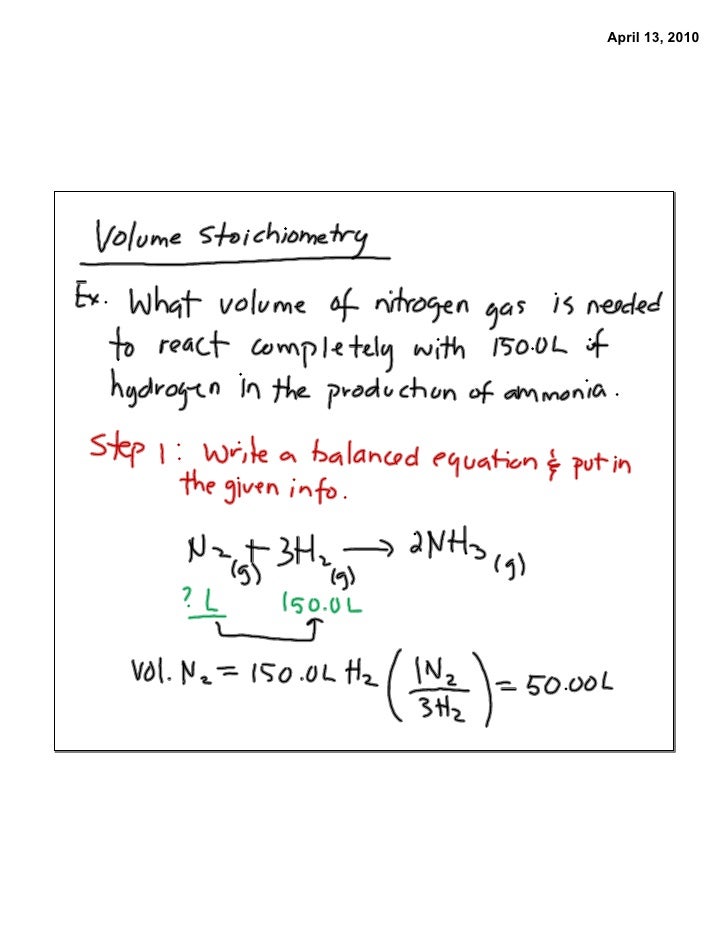 April 13, 2010
Volume Stoichiometry
Ex. What volume of nitrogen gas is needed
to react completely with 150.0L if
hydrogen in the production of ammonia.
Step 1: Write a balanced equation & put in
the given info.
N₂(g) + 3H₂(g) → 2NH₃(g)
? L 150.0L
Vol. N₂ = 150.0L H₂ (1N₂/3H₂) = 50.00L